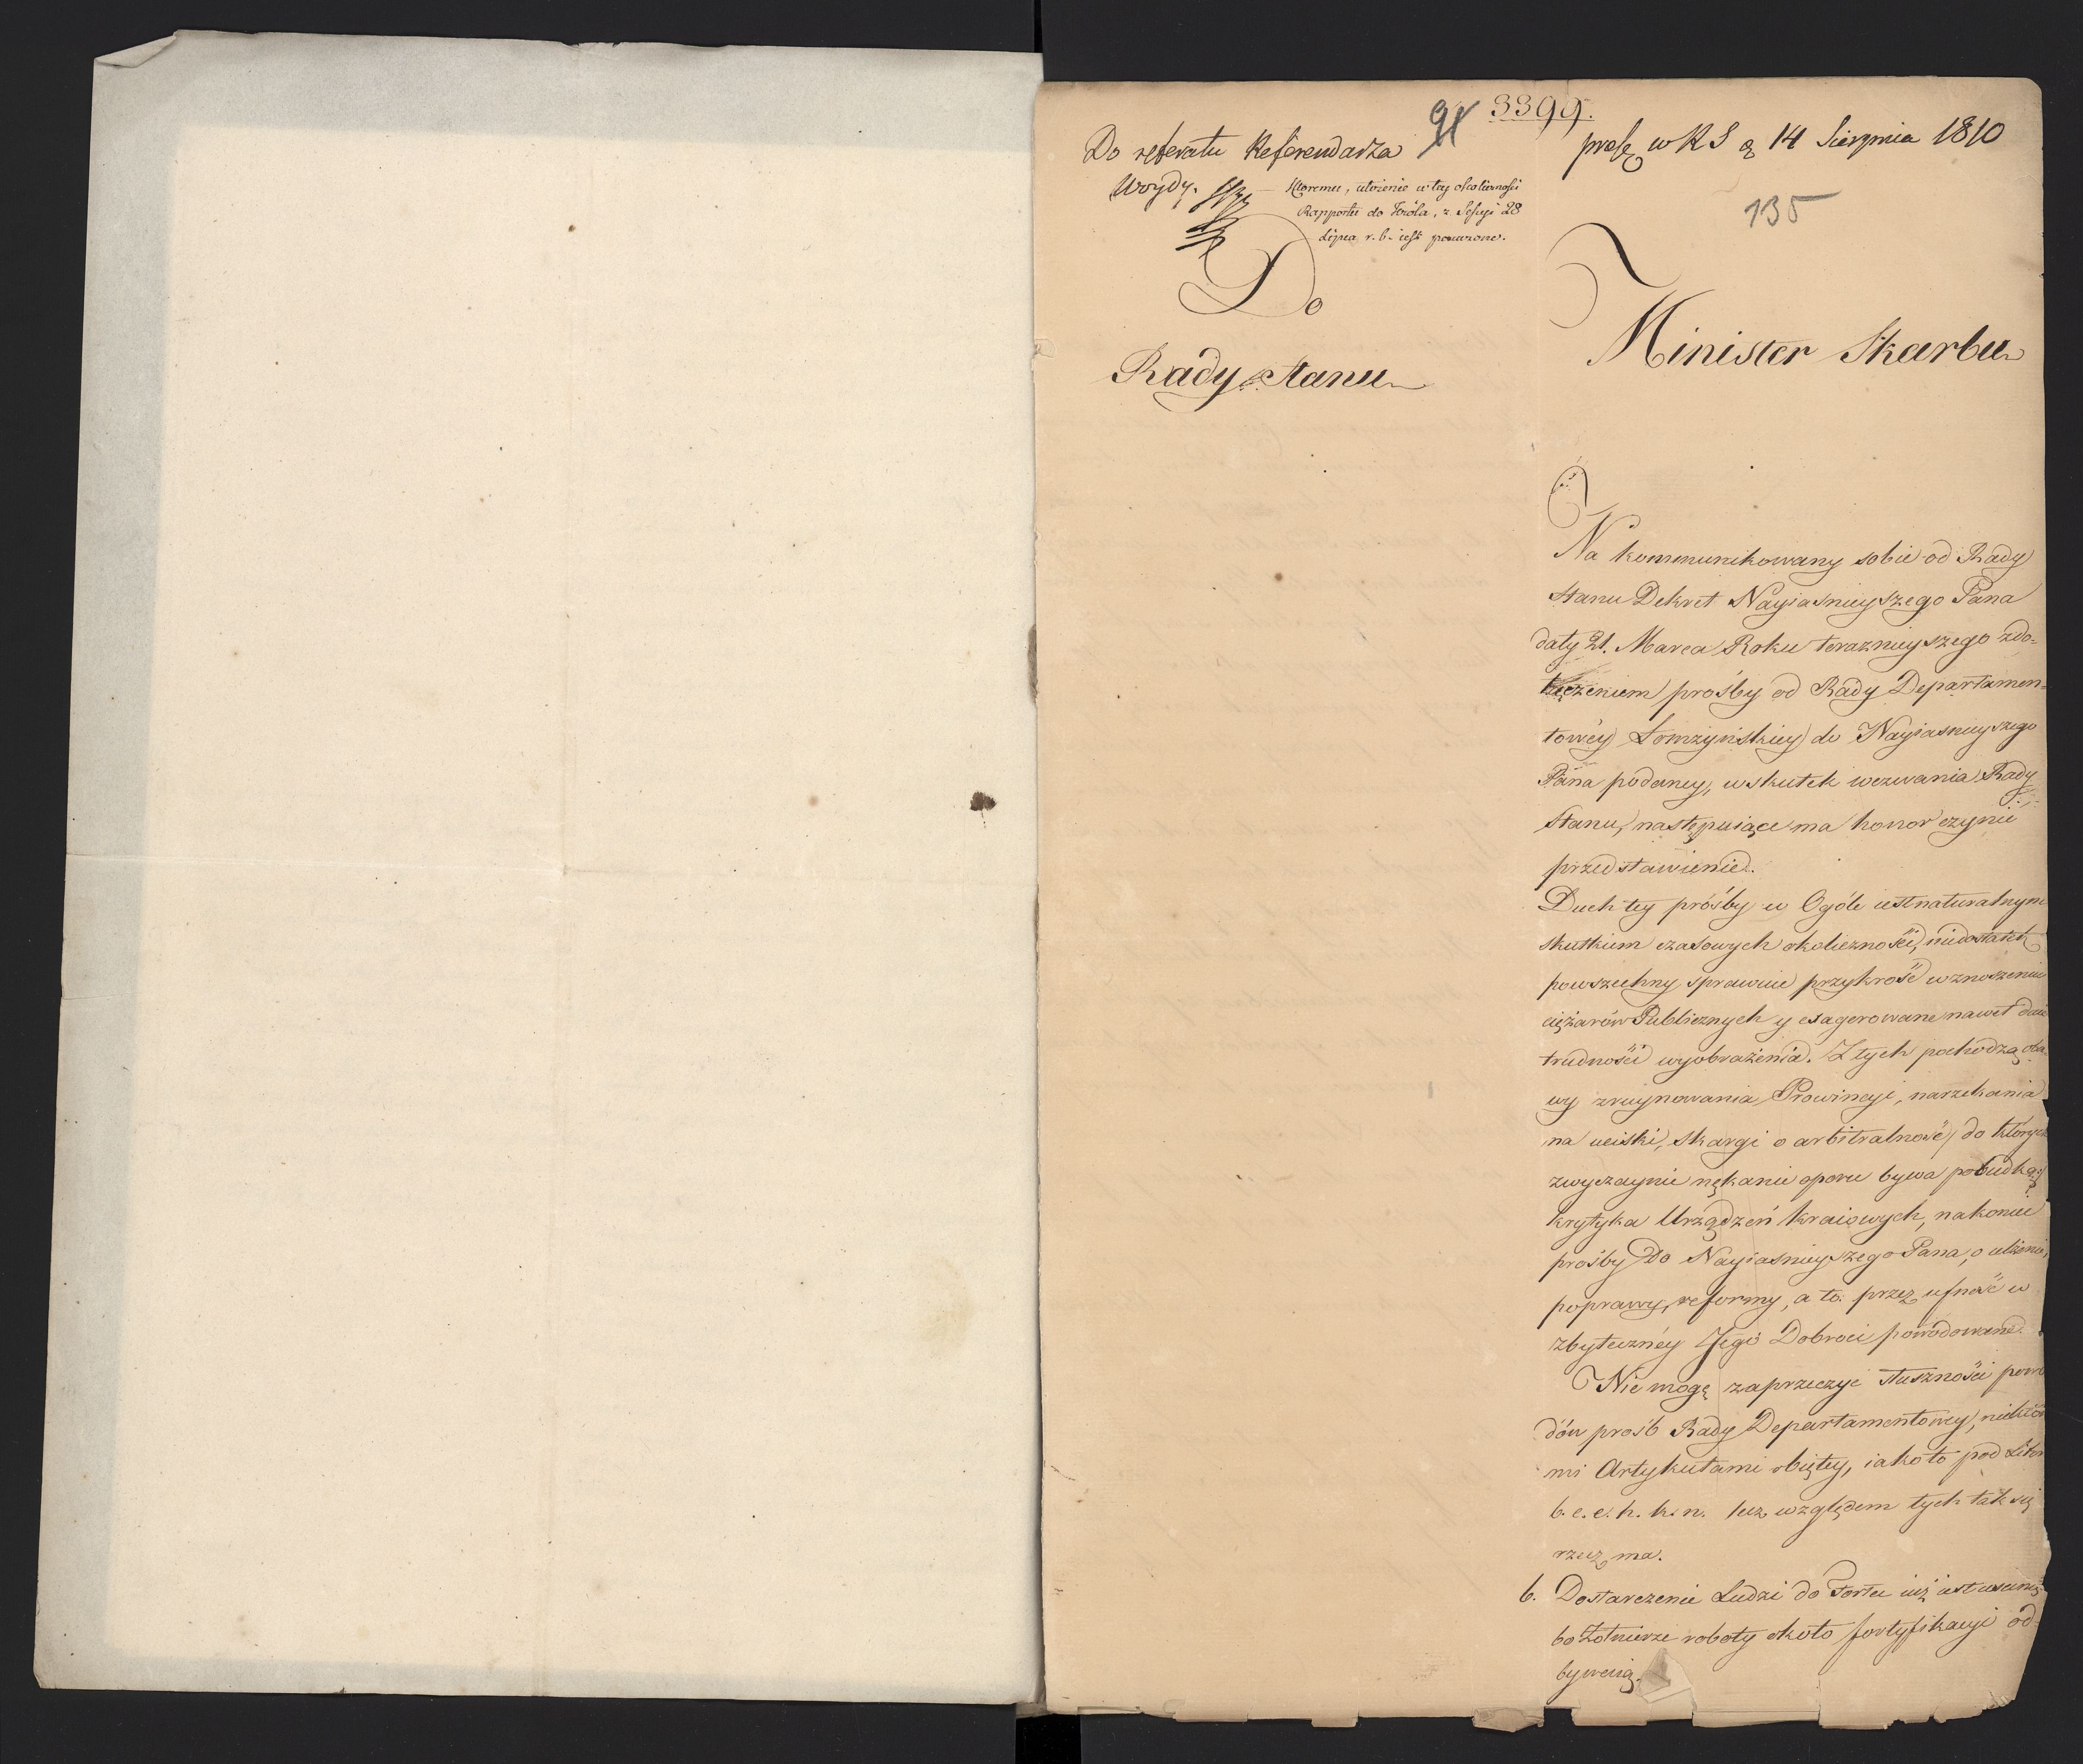 91
3399.
Do referatu Referendarza
Woydy.
Któremu, ułożenie w tey okoliczności
Rapportu do Króla, z Sessyi 28
Lipca r. b. iest poruczone.
prez w RS 14 Sierpnia 1810
135
Do
Rady Stanu
Minister Skarbu
Na kommunikowany sobie od Rady
Stanu Dekret Nayiasnieyszego Pana
daty 21. Marca Roku teraznieyszego z do-
łączeniem prośby od Rady Departamen-
towéy Łomżyńskiey do Nayiasnieyszego
Pana podaney, w skutek wezwania Rady
Stanu, następuiące ma honor czynić
przedstawienie.
Duch tey prośby w Ogóle iest naturalnym
skutkiem czasowych okoliczności, niedostatek
powszechny sprawuie przykrość w znoszeniu
ciężarów Publicznych y exagerowane nawet daie
trudności wyobrażenia. Z tych pochodzą oba-
wy zruynowania Prowincyi, narzekania
na uciski, skargi o arbitralność, do których
zwyczaynie nękanie oporu bywa pobudką;
krytyka Urządzeń kraiowych, nakoniec
prośby do Nayiasnieyszego Pana, o ulżenie,
poprawy, reformy, a to przez ufność w
zbyteczney Jego Dobroci powodowane.
Nie mogę zaprzeczyć słuszności powo
dów prośb Rady Departamentowey, niektó
mi Artykułami obiętey, iako to pod Liter
b. c. e. h. k. n. lecz względem tych tak się
rzecz ma.
b. Dostarczenie Ludzi do Fortec iuż iest usunię
bo Żołnierze roboty około fortyfikacyi od-
bywaią.